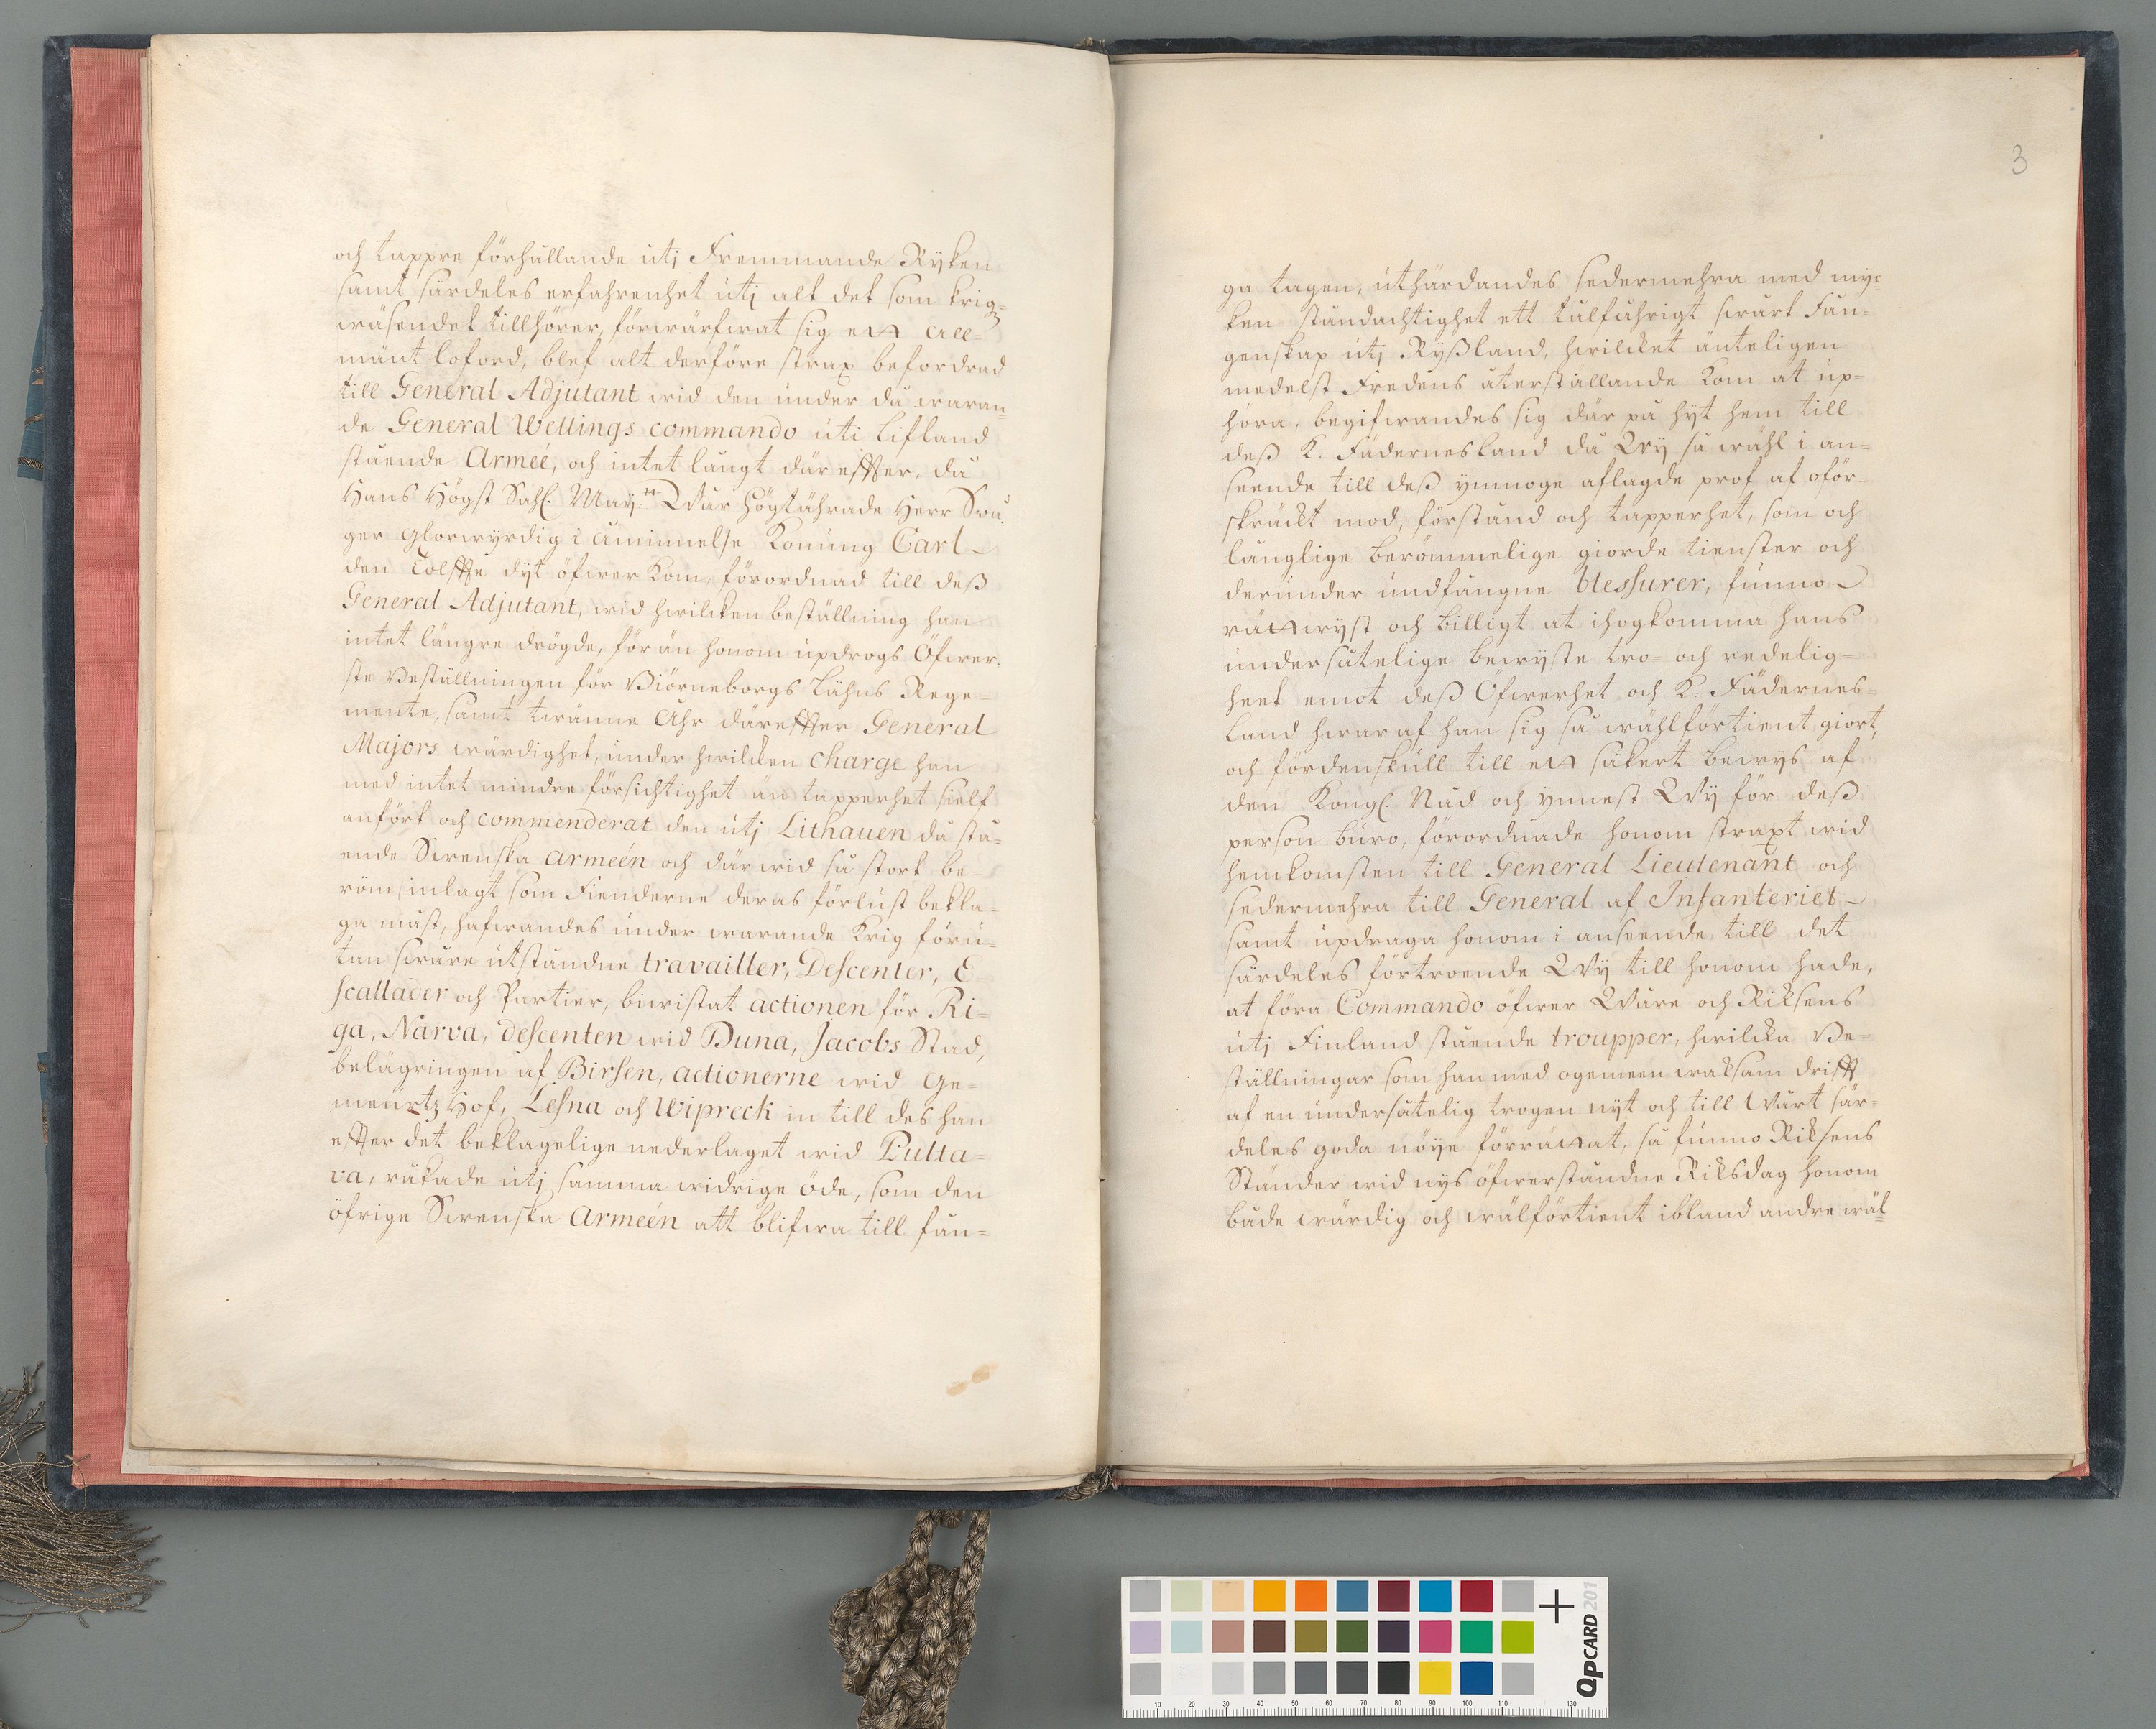 och tappre förhållande utj Fremmande Ryken
samt särdeles erfahrenhet utj alt det som krig=
wäsendet tillhörer, förwärfwat sig ett all=
mänt loford, blef alt derföre strax befordrad
till General Adjutant wid den under då waran=
de General Wellings commando uti Lifland
stående Armeé, och intet långt där effter, då
Hans Högst Sahl. May.tt Wår Högtährade Herr Swå=
ger Glorwyrdig i åminnelse Konung Carl
den Tolffte dyt öfwer kom, förordnad till deß
General Adjutant, wid hwilcken beställning han
intet längre drögde, för än honom updrogs Öfwer=
ste Beställningen för Biörneborgs Lähns Rege=
mente, samt twänne Åhr däreffter General
Majors wärdighet, under hwilcken charge han
med intet mindre försichtighet än tapperhet sielf
anfört och commenderat den utj Lithauen då stå=
ende Swenska armeén och där wid så stort be=
röm inlagt som Fienderne deras förlust bekla=
ga måst, hafwandes under warande Krig föru=
tan swåre utståndne travailler, Descenter, E
scallader och Partier, biwistat actionen för Ri=
ga, Narva, descenten wid Duna, Jacobs Stad,
belägringen af Birsen, actionerne wid Ge=
meurtz Hof, Lesna och Wipreck in till des han
effter det beklagelige nederlaget wid Pulta=
va, råkade utj samma widrige öde, som den
öfrige Swenska Armeén att blifwa till fån=
3
ga tagen, uthärdandes sedermehra med myc
ken ståndachtighet ett tålfåhrigt swårt Fån=
genskap utj Ryßland, hwilcket änteligen
medelst Fredens återställande kom at up=
höra, begifwandes sig där på hyt hem till
deß K. Fädernesland då Wy så wähl i an=
seende till deß ymnoge aflagde prof af oför=
skräckt mod, förstånd och tapperhet, som och
långlige berömmelige giorde tienster och
derunder undfångne blessurer, funno
rättwyst och billigt at ihogkomma hans
undersåtelige bewyste tro= och redelig=
heet emot deß Öfwerhet och K. Fädernes=
land hwaraf han sig så wählförtient giort,
och fördenskull till ett säkert bewys af
den Kongl. Nåd och ynnest Wy för deß
person buro, förordnade honom straxt wid
hemkomsten till General Lieutenant och
sedermehra till General af Infanteriet
samt updraga honom i anseende till det
särdeles förtroende Wy till honom hade,
at föra Commando öfwer Wåre och Riksens
utj Finland stående troupper, hwilcka Be=
ställningar som han med ogemeen waksam drifft
af en undersåtelig trogen nyt och till Wårt sär=
deles goda nöye förrättat, så funno Riksens
Ständer wid nys öfwerståndne Riksdag honom
både wärdig och wälförtient ibland andre wäl=